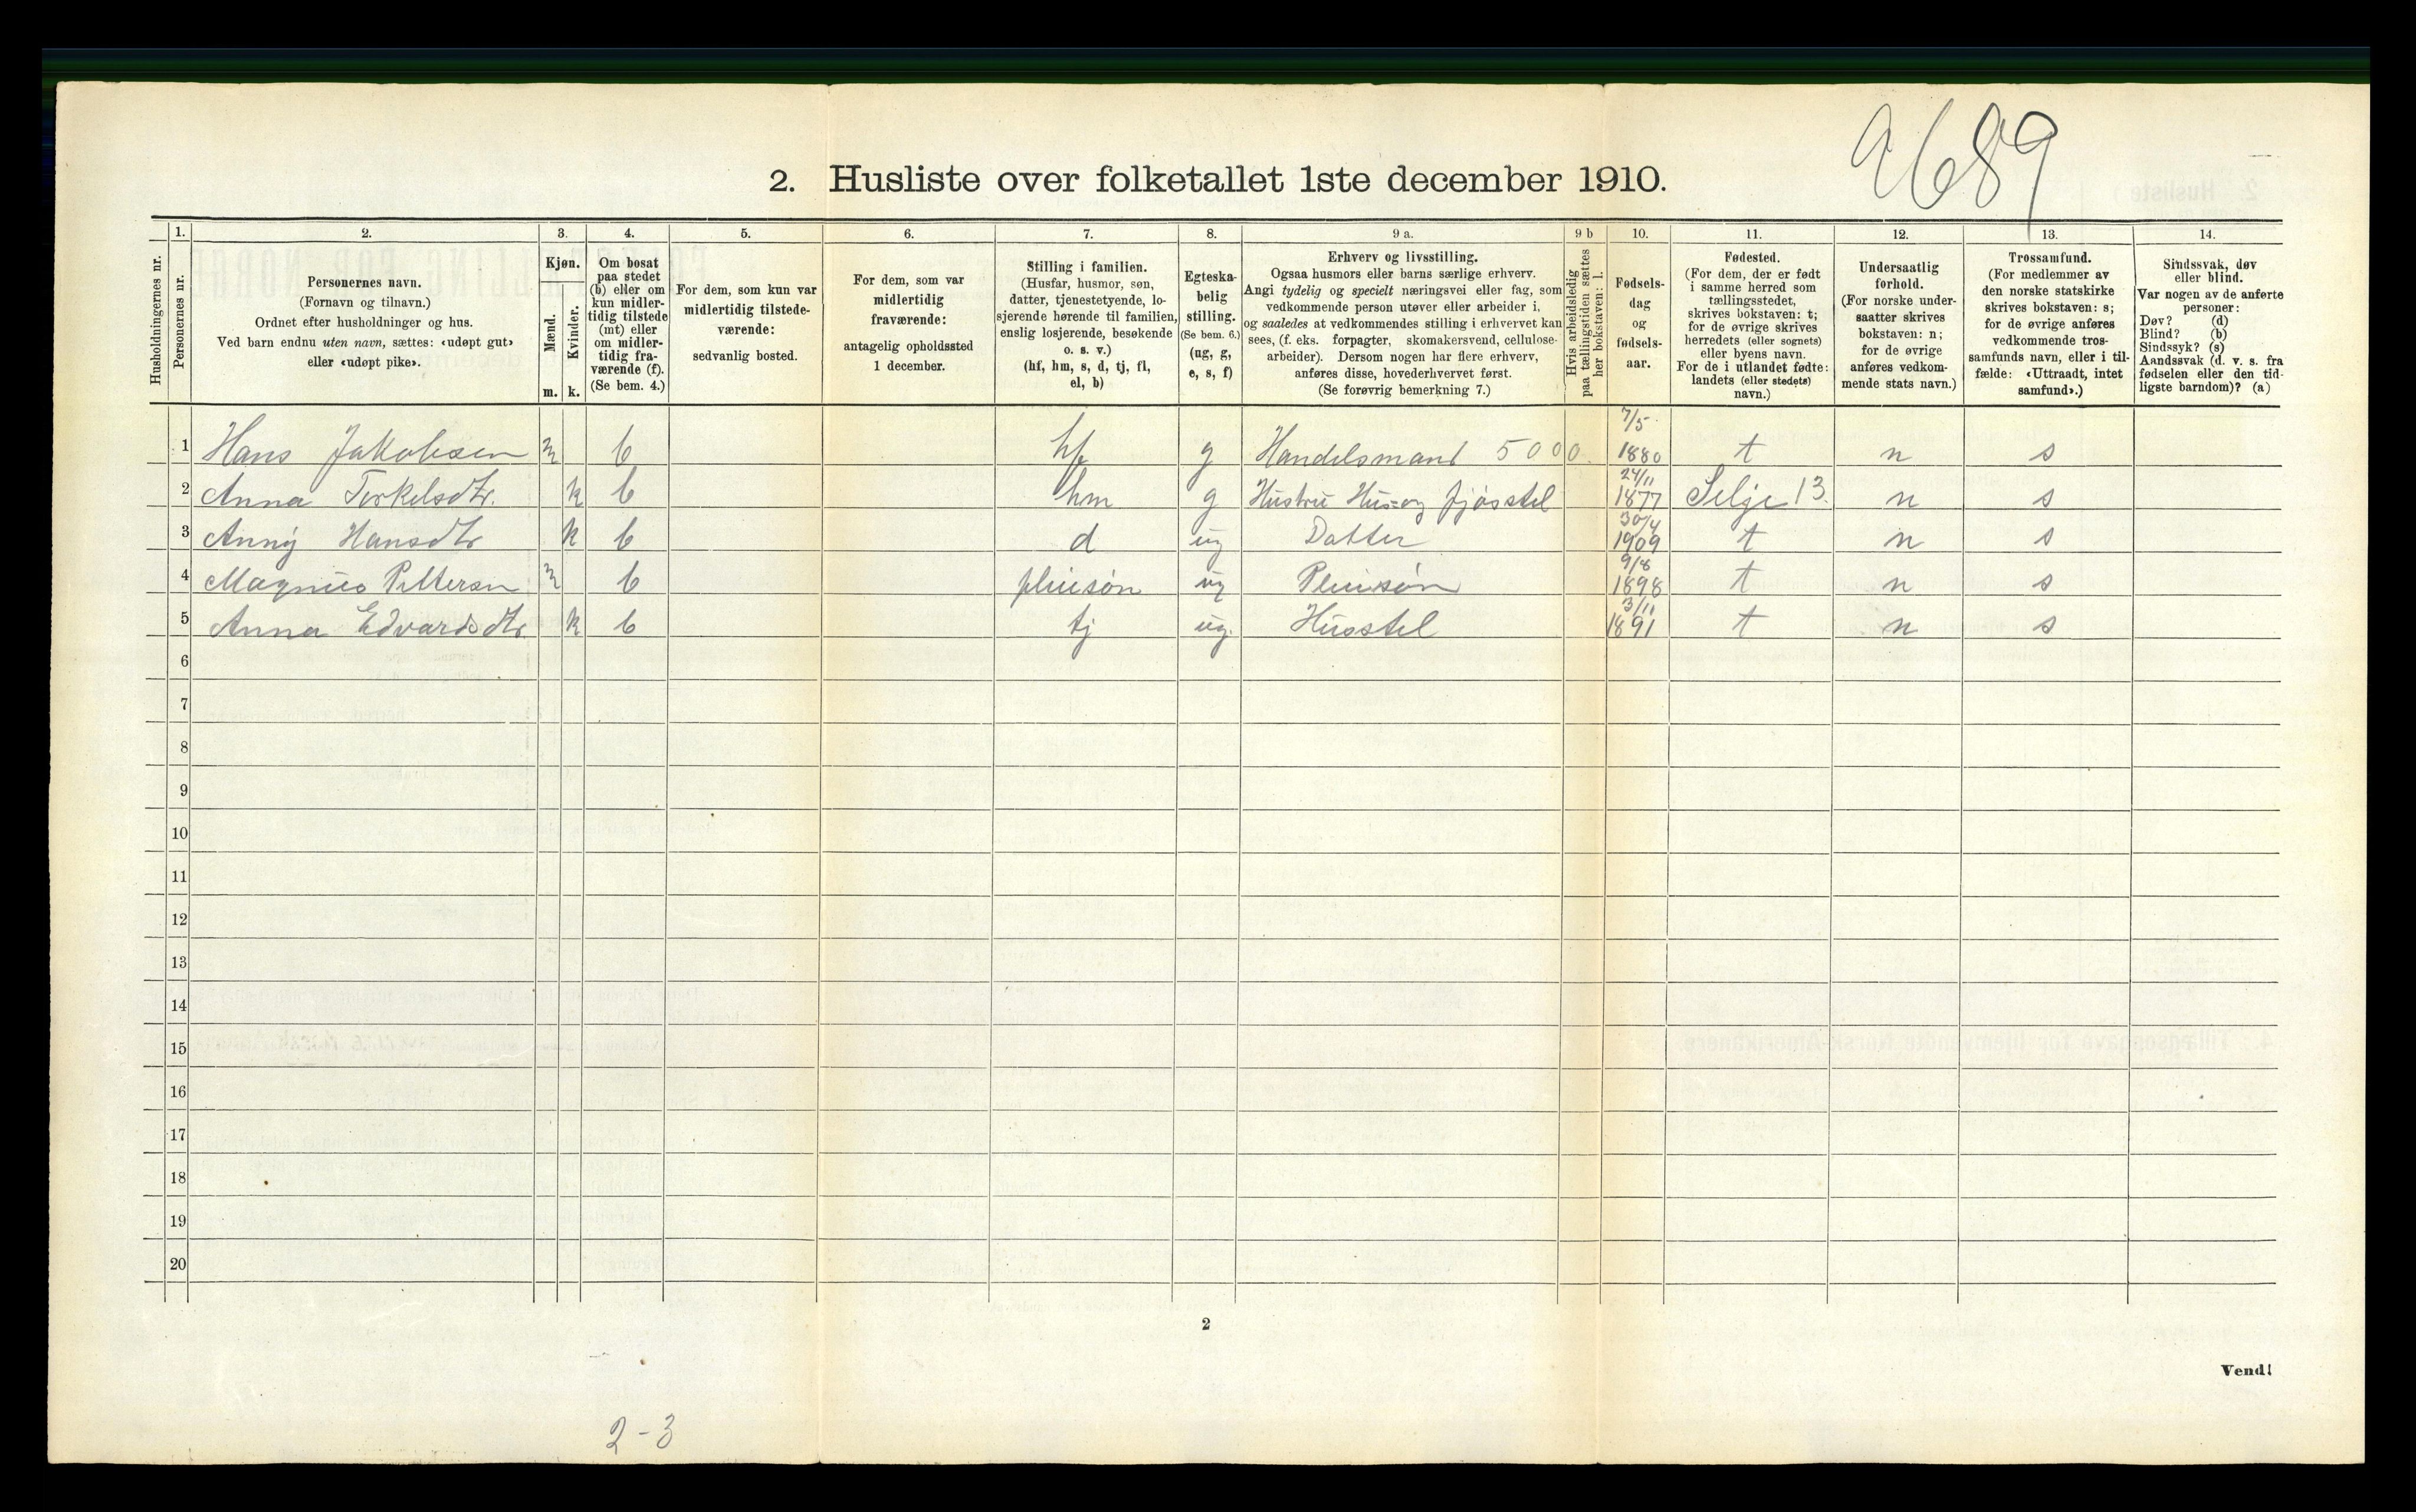 9689
2. Husliste over folketallet 1ste december 1910.
Husholdningernes nr.
1. Personernes nr.
2. Personernes navn.
(Fornavn og tilnavn.)
Ordnet efter husholdninger og hus.
Ved barn endnu uten navn, sættes: «udøpt gut»
eller «udøpt pike».
3. Kjøn.
Mænd. m.
Kvinder. k.
4. Om bosat
paa stedet
(b) eller om
kun midler-
tidig tilstede
(mt) eller
om midler-
tidig fra-
værende (f).
(Se bem. 4.)
5. For dem, som kun var
midlertidig tilstede-
værende:
sedvanlig bosted.
6. For dem, som var
midlertidig
fraværende:
antagelig opholdssted
1 december.
7. Stilling i familien.
(Husfar, husmor, søn,
datter, tjenestetyende, lo-
sjerende hørende til familien,
enslig losjerende, besøkende
o. s. v.)
(hf, hm, s, d, tj, fl,
el, b)
8. Egteska-
belig
stilling.
(Se bem. 6.)
(ug, g,
e, s, f)
9 a. Erhverv og livsstilling.
Ogsaa husmors eller barns særlige erhverv.
Angi tydelig og specielt næringsvei eller fag, som
vedkommende person utøver eller arbeider i,
og saaledes at vedkommendes stilling i erhvervet kan
sees, (f. eks. forpagter, skomakersvend, cellulose-
arbeider). Dersom nogen har flere erhverv,
anføres disse, hovederhvervet først.
(Se forøvrig bemerkning 7.)
9 b Hvis arbeidsledig
paa tællingstiden sættes
her bokstaven: l.
10. Fødsels-
dag
og
fødsels-
aar.
11. Fødested.
(For dem, der er født
i samme herred som
tællingsstedet,
skrives bokstaven: t;
for de øvrige skrives
herredets (eller sognets)
eller byens navn.
For de i utlandet fødte:
landets (eller stedets)
navn.)
12. Undersaatlig
forhold.
(For norske under-
saatter skrives
bokstaven: n;
for de øvrige
anføres vedkom-
mende stats navn.)
13. Trossamfund.
(For medlemmer av
den norske statskirke
skrives bokstaven: s;
for de øvrige anføres
vedkommende tros-
samfunds navn, eller i til-
fælde: «Uttraadt, intet
samfund».)
14. Sindssvak, døv
eller blind.
Var nogen av de anførte
personer:
Døv? (d)
Blind? (b)
Sindssyk? (s)
Aandssvak (d. v. s. fra
fødselen eller den tid-
ligste barndom)? (a)
1 Hans Jakobsen m b hf g Handelsmand 5000. 7/5 1880 t n s
2 Anna Terkelsdtr. k b hm g Hustru Hus=og fjøsstel 24/11 1877 Selje 13. n s
3 Anny Hansdtr k b d ug Datter 30/4 1909 t n s
4 Magnus Pettersn m b pleiesøn ug Pleiesøn 9/8 1898 t n s
5 Anna Edvardsdtr. k b tj ug. Husstel 3/11 1891 t n s
6
7
8
9
10
11
12
13
14
15
16
17
18
19
20
2
Vend!
2-3